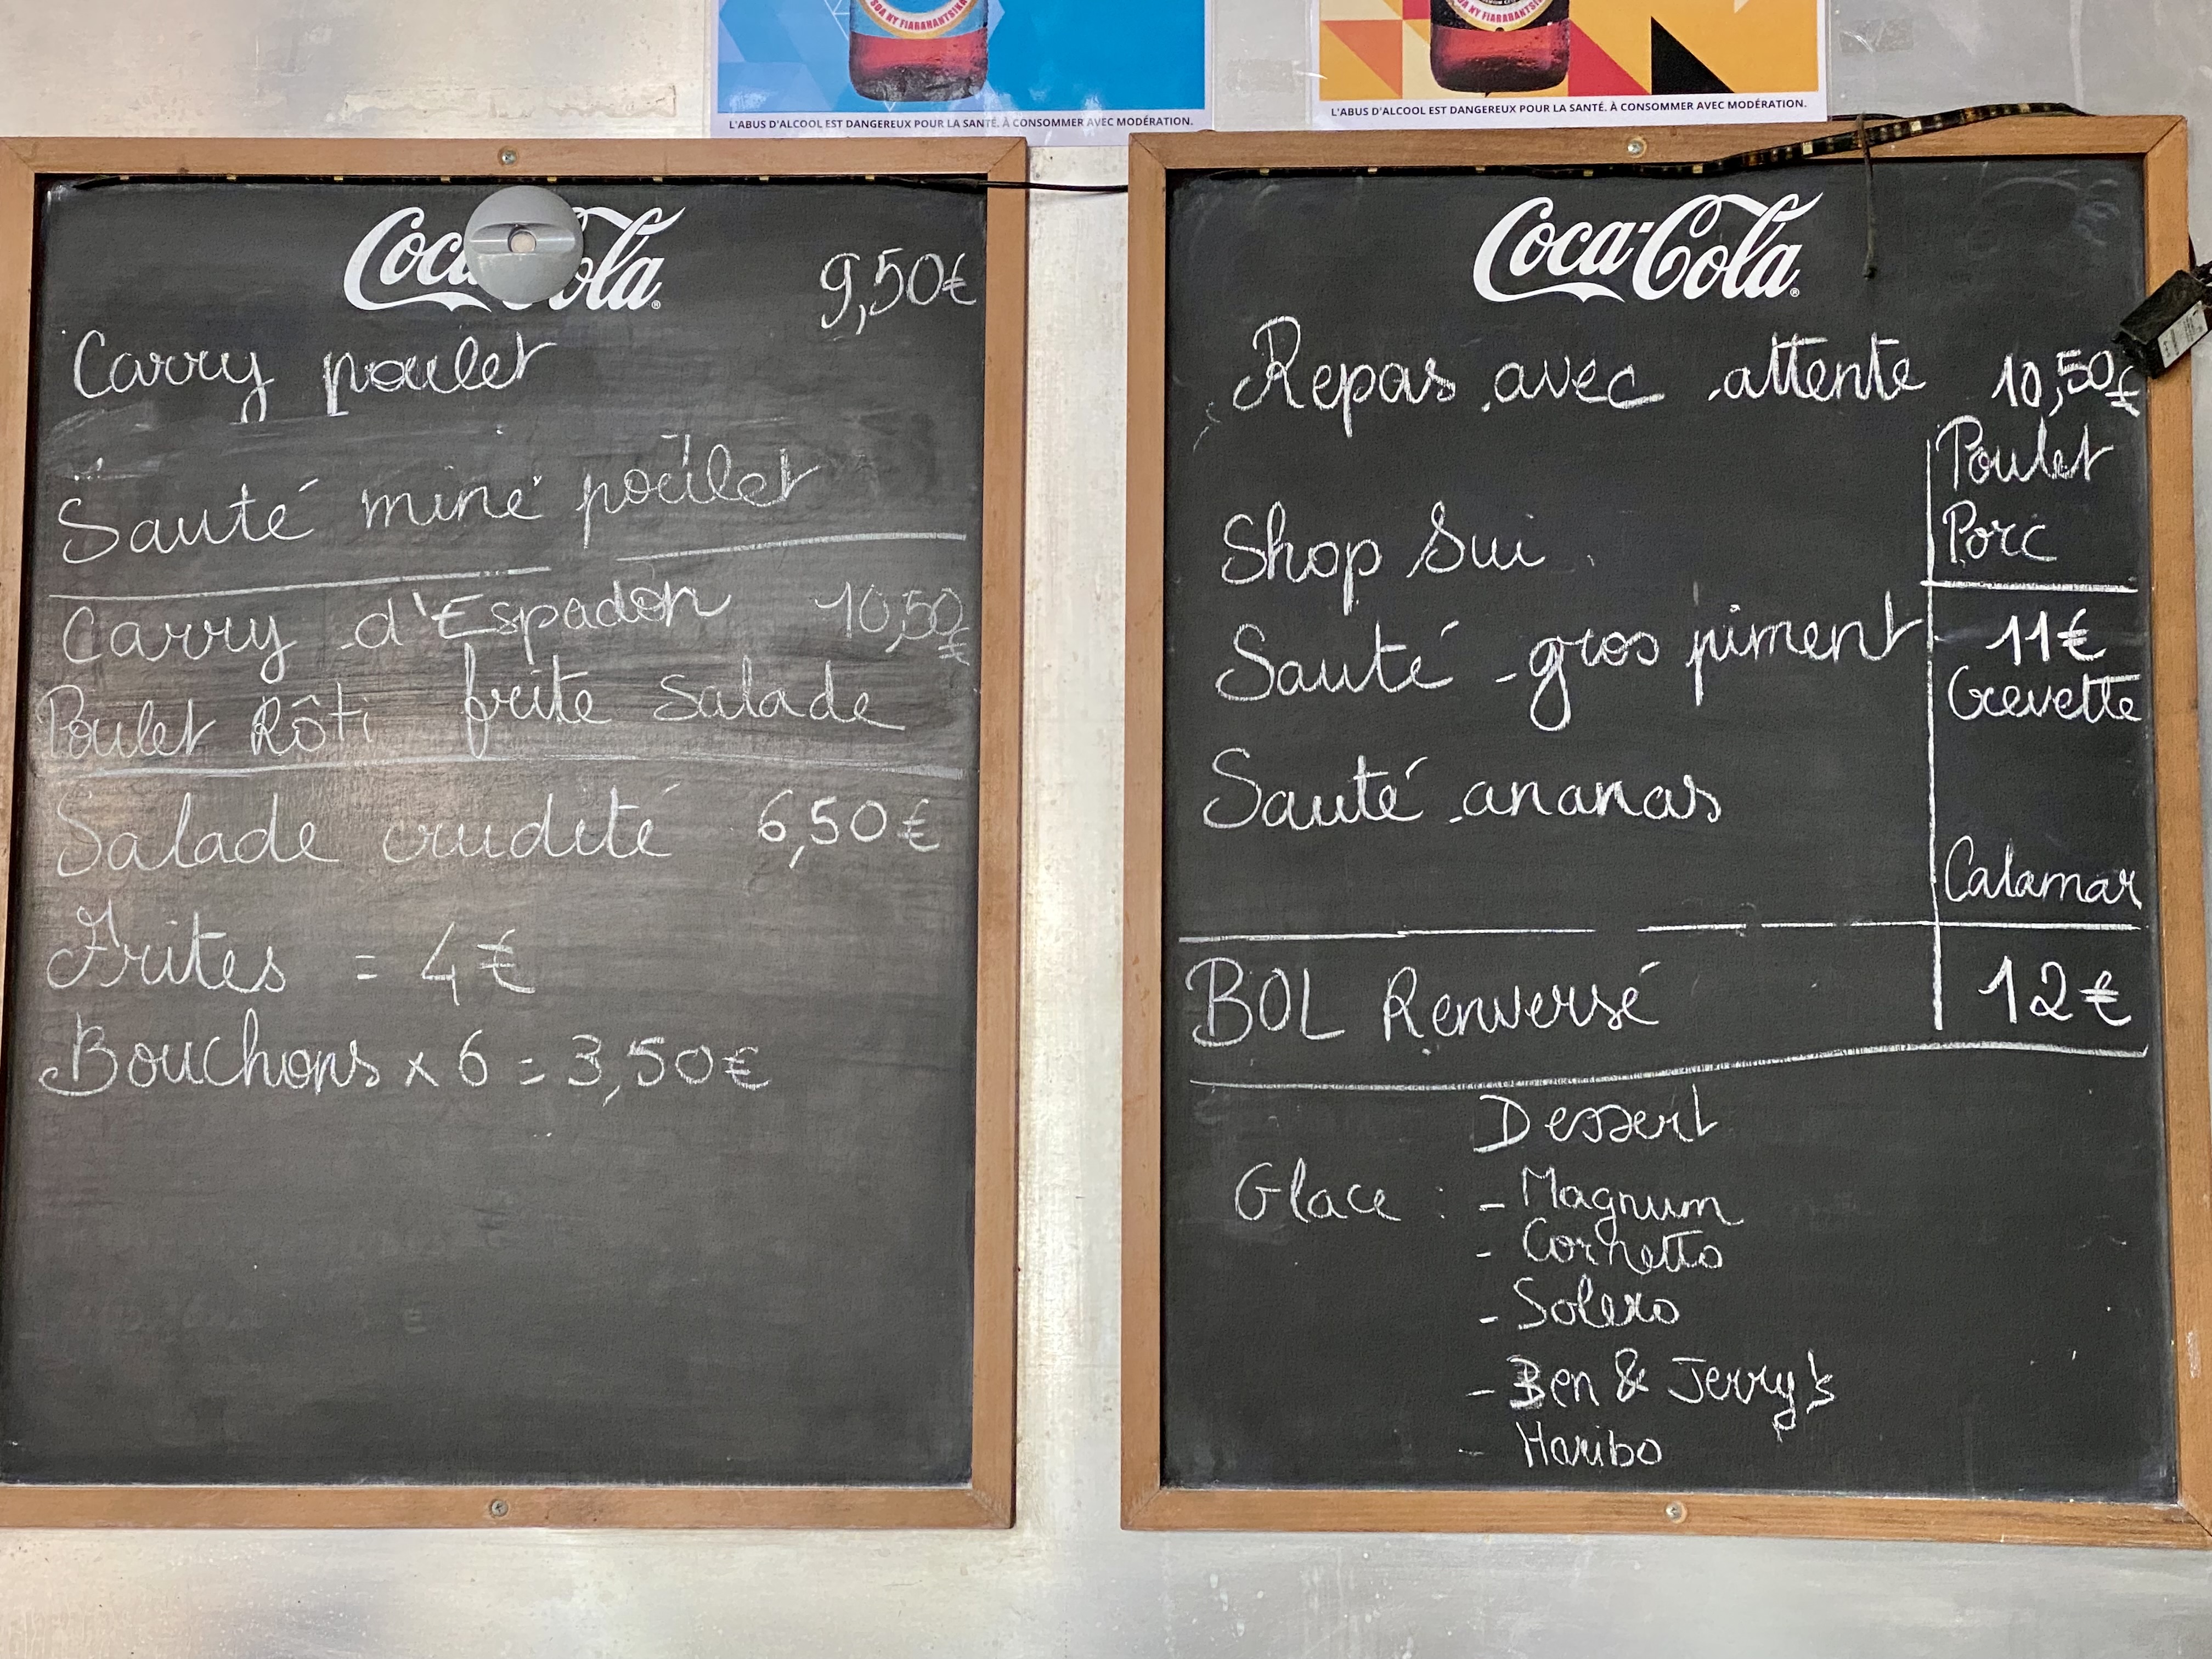 SOA NY FIARAHANTSIKA
L'ABUS D'ALCOOL EST DANGEREUX POUR LA SANTÉ. À CONSOMMER AVEC MODÉRATION.
SOA NY FIARAHANTSIKA
L'ABUS D'ALCOOL EST DANGEREUX POUR LA SANTÉ. À CONSOMMER AVEC MODÉRATION.
Coca-Cola
9,50€
Carry poulet
Sauté miné poulet
Carry d'Espadon 10,50€
Poulet Rôti frite salade
Salade crudité 6,50€
Frites = 4€
Bouchons x 6 = 3,50€
Coca-Cola
Repas avec attente 10,50€
Poulet
Porc
Shop Sui
Sauté gros piment 11€
Crevette
Sauté ananas
Calamar
BOL Renversé 12€
Dessert
Glace : - Magnum
- Cornetto
- Solero
- Ben & Jerry's
- Haribo